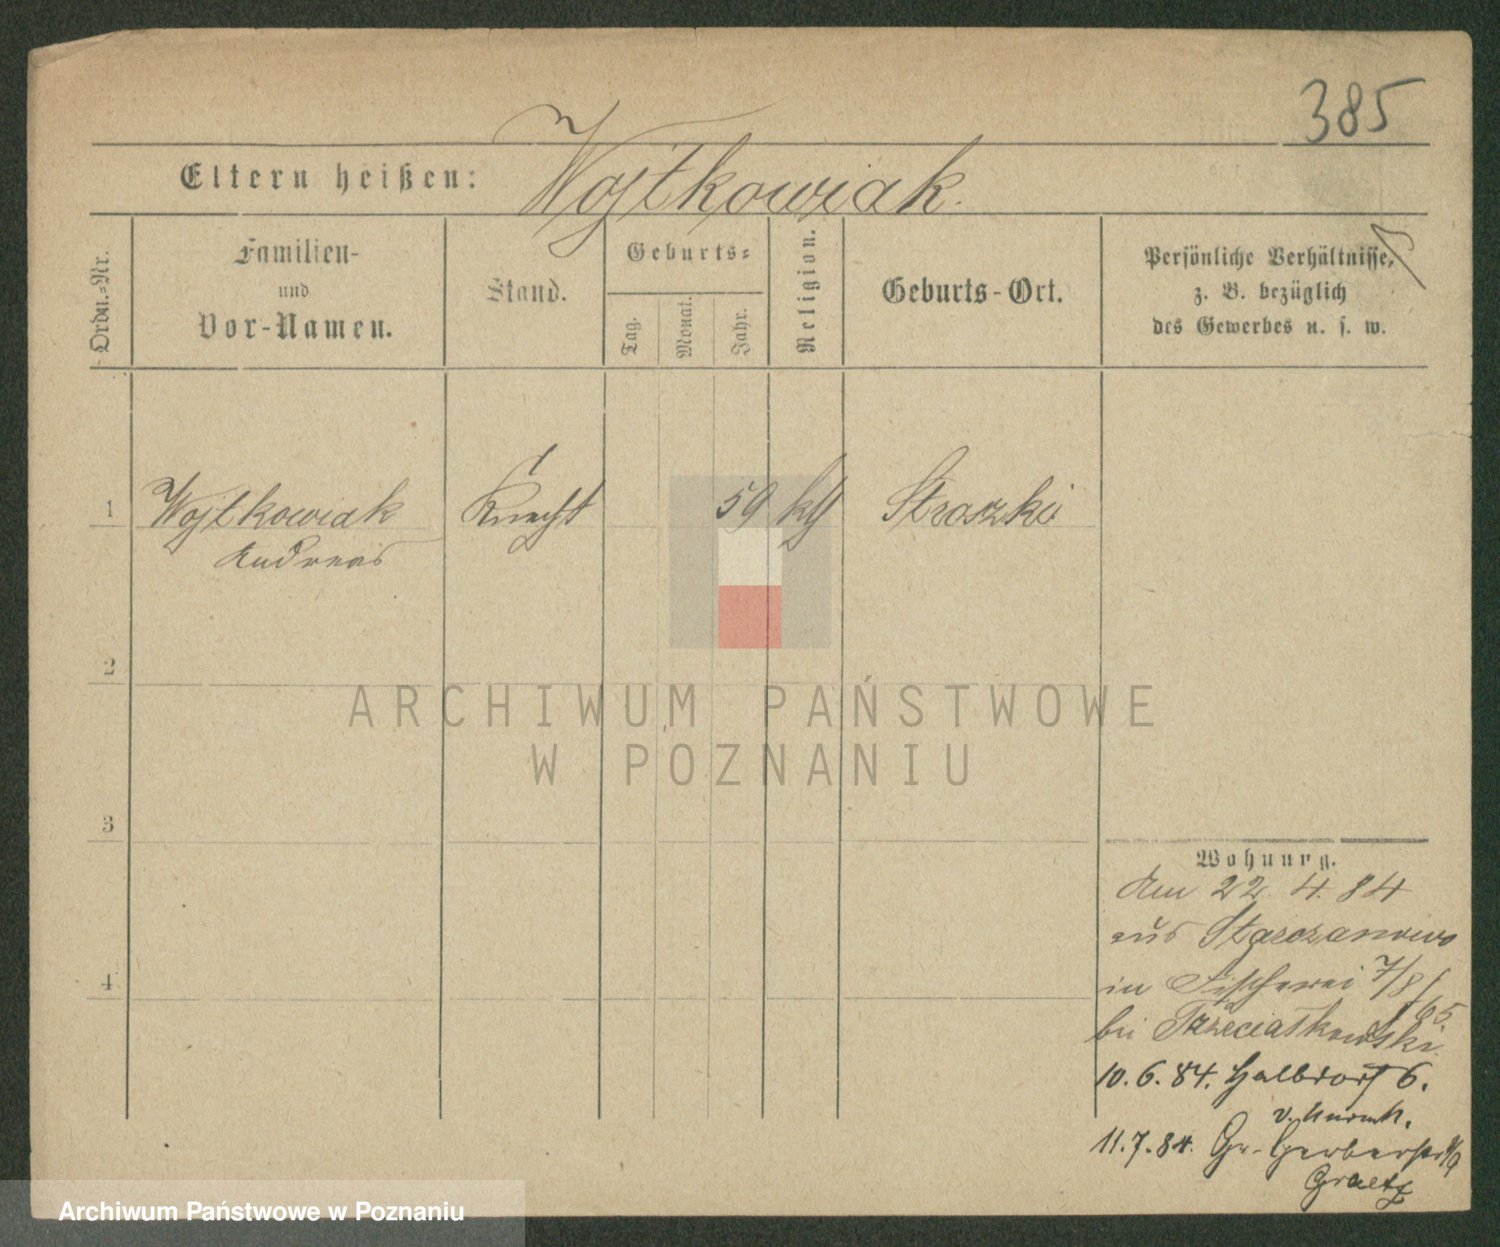 385
Eltern heißen: Wojtkowiak.
Ordn.-Nr.
Familien-
und
Vor-Namen.
Stand.
Geburts-
Tag.
Monat.
Jahr.
Religion.
Geburts-Ort.
Persönliche Verhältnisse,
z. B. bezüglich
des Gewerbes u. s. w.
1 Wojtkowiak Knecht 59 kth Stroszki
Andreas
2
3
4
Wohnung.
Am 22. 4. 84
aus Starczanowo
in Fischerei 7/8
bei Trzeciatkowski.
10. 6. 84. Halbdorf 6.
11. 7. 84. Gr. Gerberstr
Graetz
ARCHIWUM PAŃSTWOWE
W POZNANIU
Archiwum Państwowe w Poznaniu